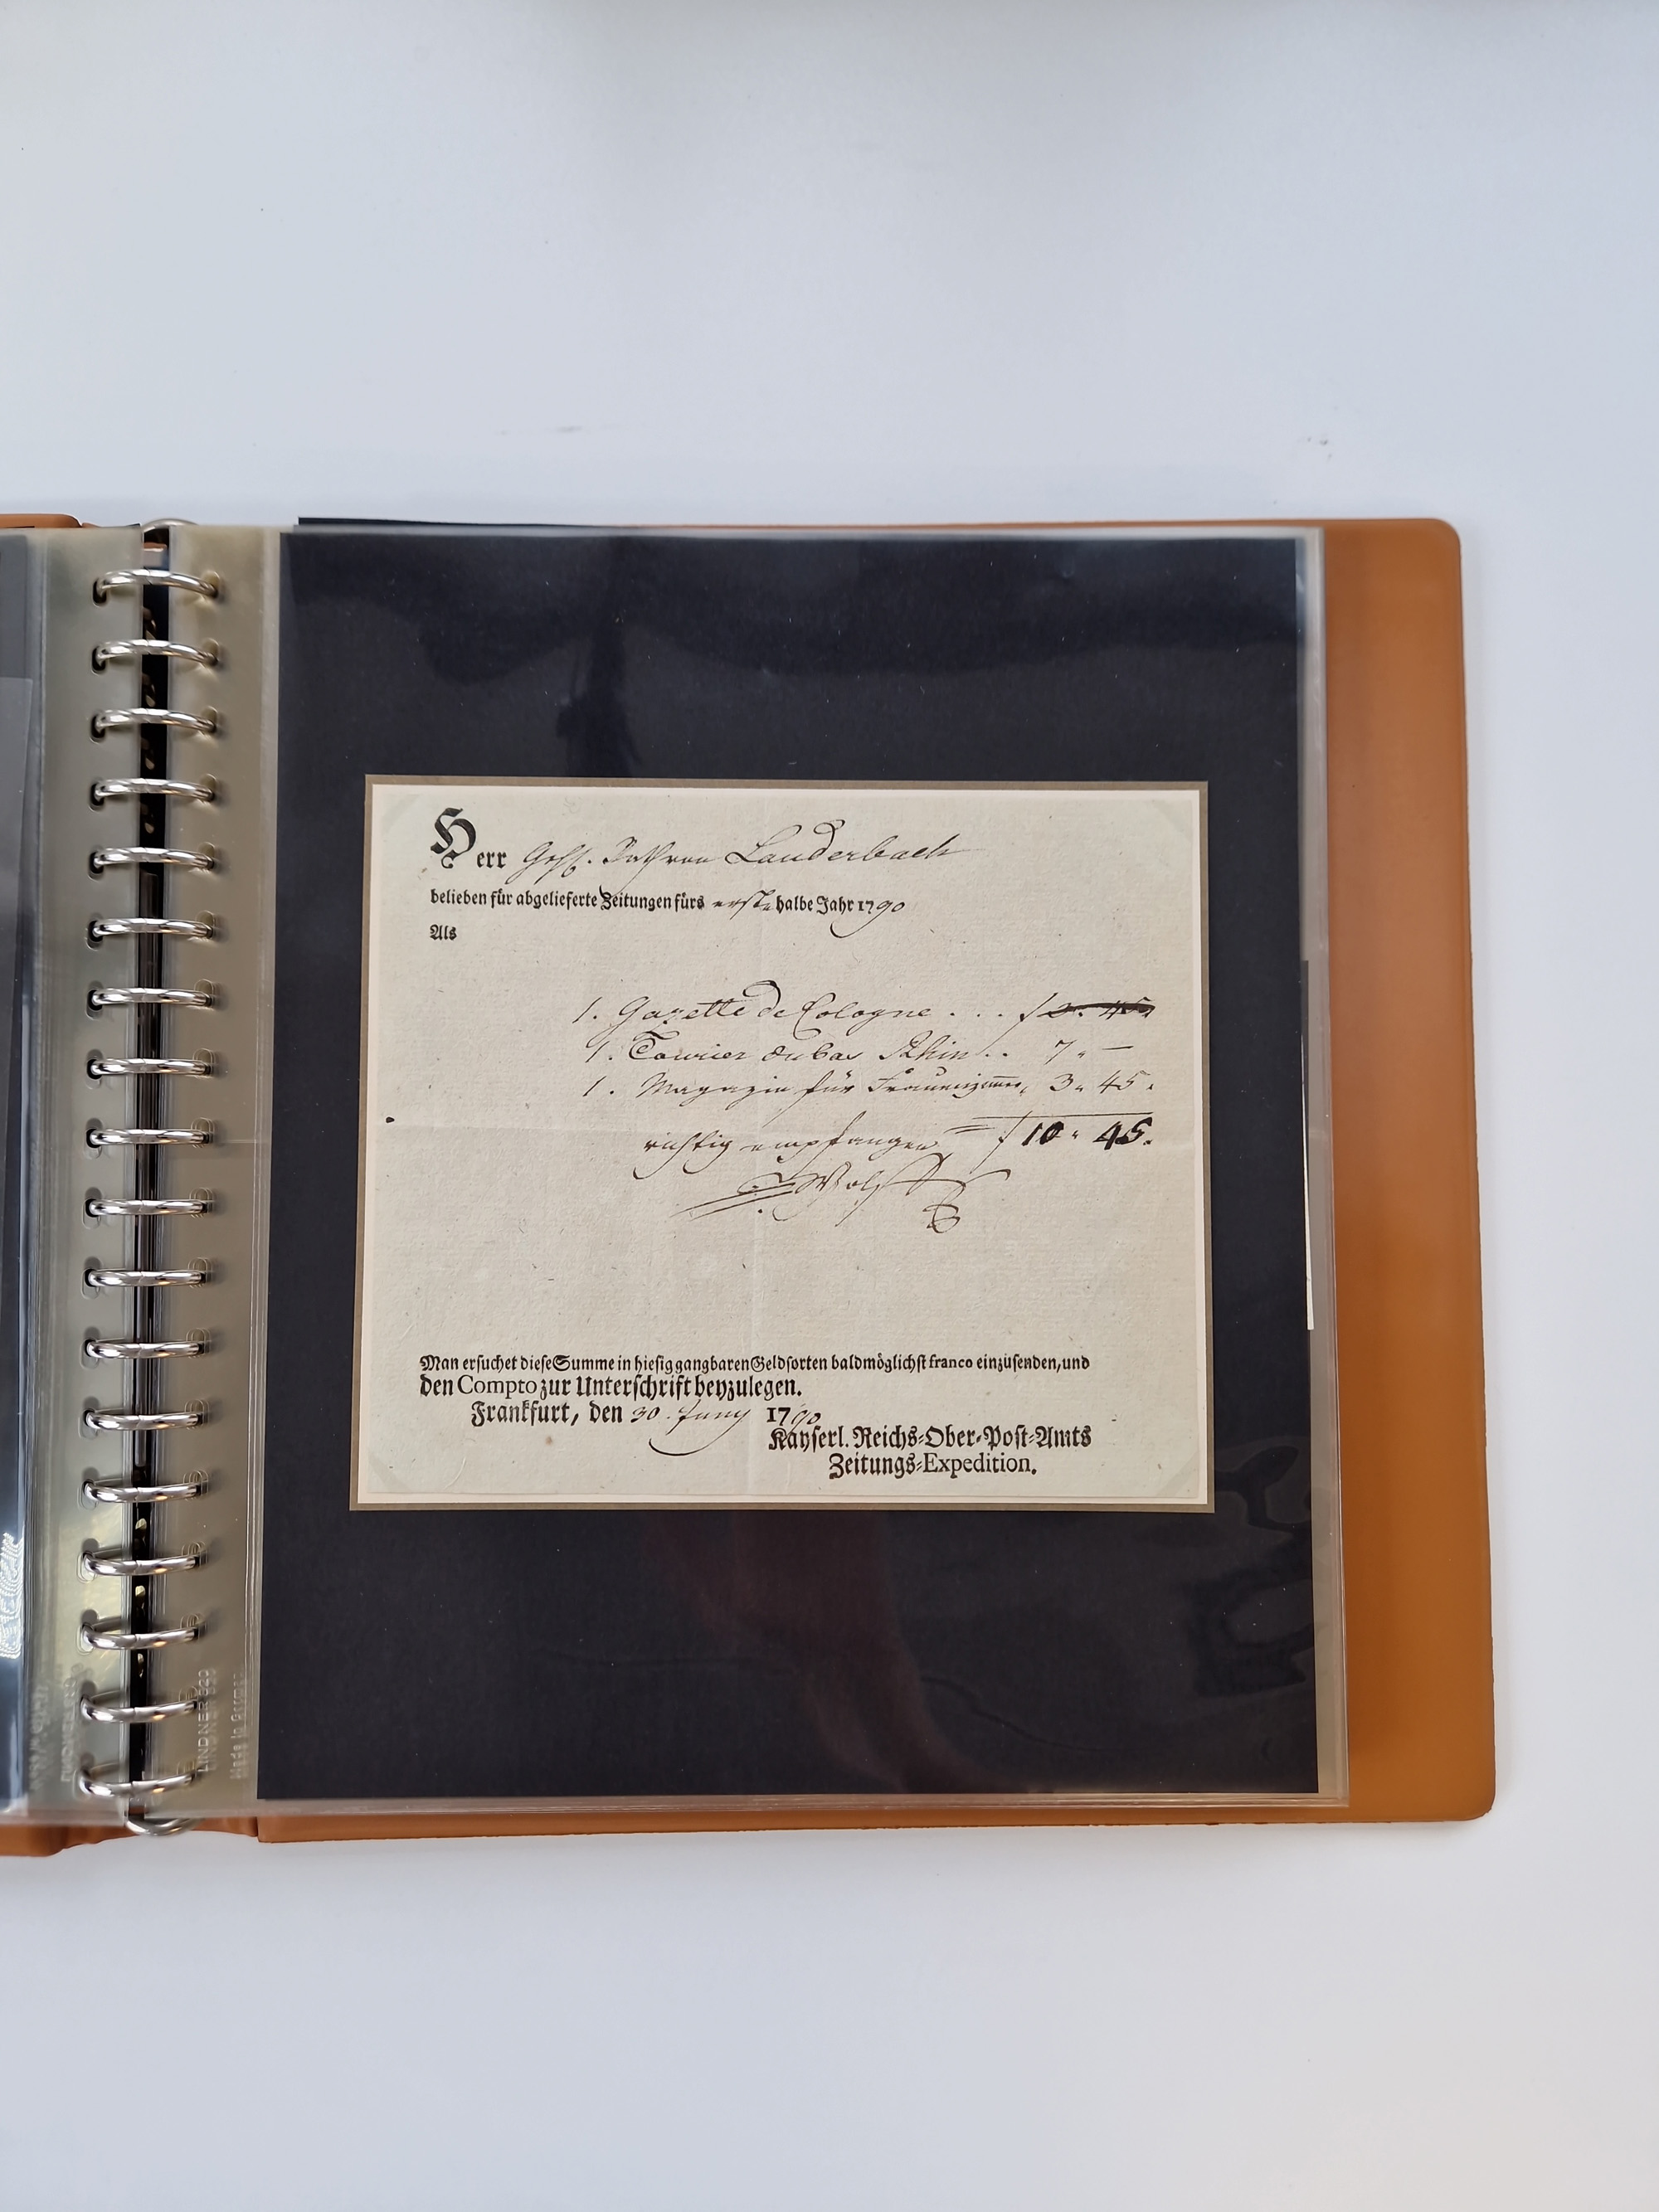 Herr Geh. Rath von Lauderbach
belieben für abgelieferte Zeitungen fürs erste halbe Jahr 1790
Als
1. Gazette de Cologne . . . f 2. 45.
1. Courier du bas Rhin . . 7 " —
1. Magazin für Frauenzimer, 3 " 45 .
richtig empfangen = f 10 " 45.
Wolff
Man ersuchet diese Summe in hiesig gangbaren Geldsorten baldmöglichst franco einzusenden, und
den Compto zur Unterschrift beyzulegen.
Frankfurt, den 30. Juny 1790
Kayserl. Reichs-Ober-Post-Amts
Zeitungs-Expedition.
LINDNER
Made in Germany